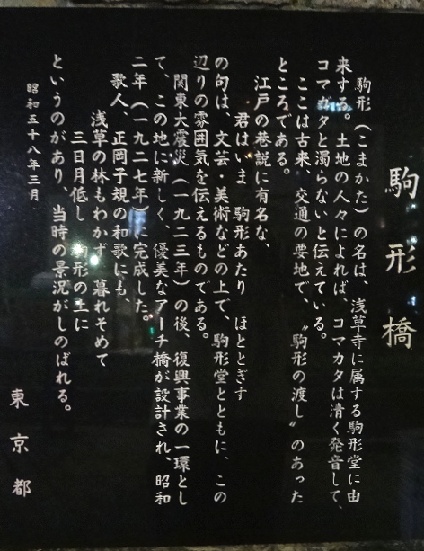 駒形橋
駒形（こまかた）の名は、浅草寺に属する駒形堂に由
来する。土地の人々によれば、コマカタは清く発音して、
コマガタと濁らないと伝えている。
ここは古来、交通の要地で、〝駒形の渡し〟のあった
ところである。
江戸の巷説に有名な、
君はいま 駒形あたり ほととぎす
の句は、文芸・美術などの上で、駒形堂とともに、この
辺りの雰囲気を伝えるものである。
関東大震災（一九二三年）の後、復興事業の一環とし
て、この地に新しく、優美なアーチ橋が設計され、昭和
二年（一九二七年）に完成した。
歌人、正岡子規の和歌にも、
浅草の林もわかず 暮れそめて
三日月低し 駒形の上に
というのがあり、当時の景況がしのばれる。
昭和五十八年三月
東京都